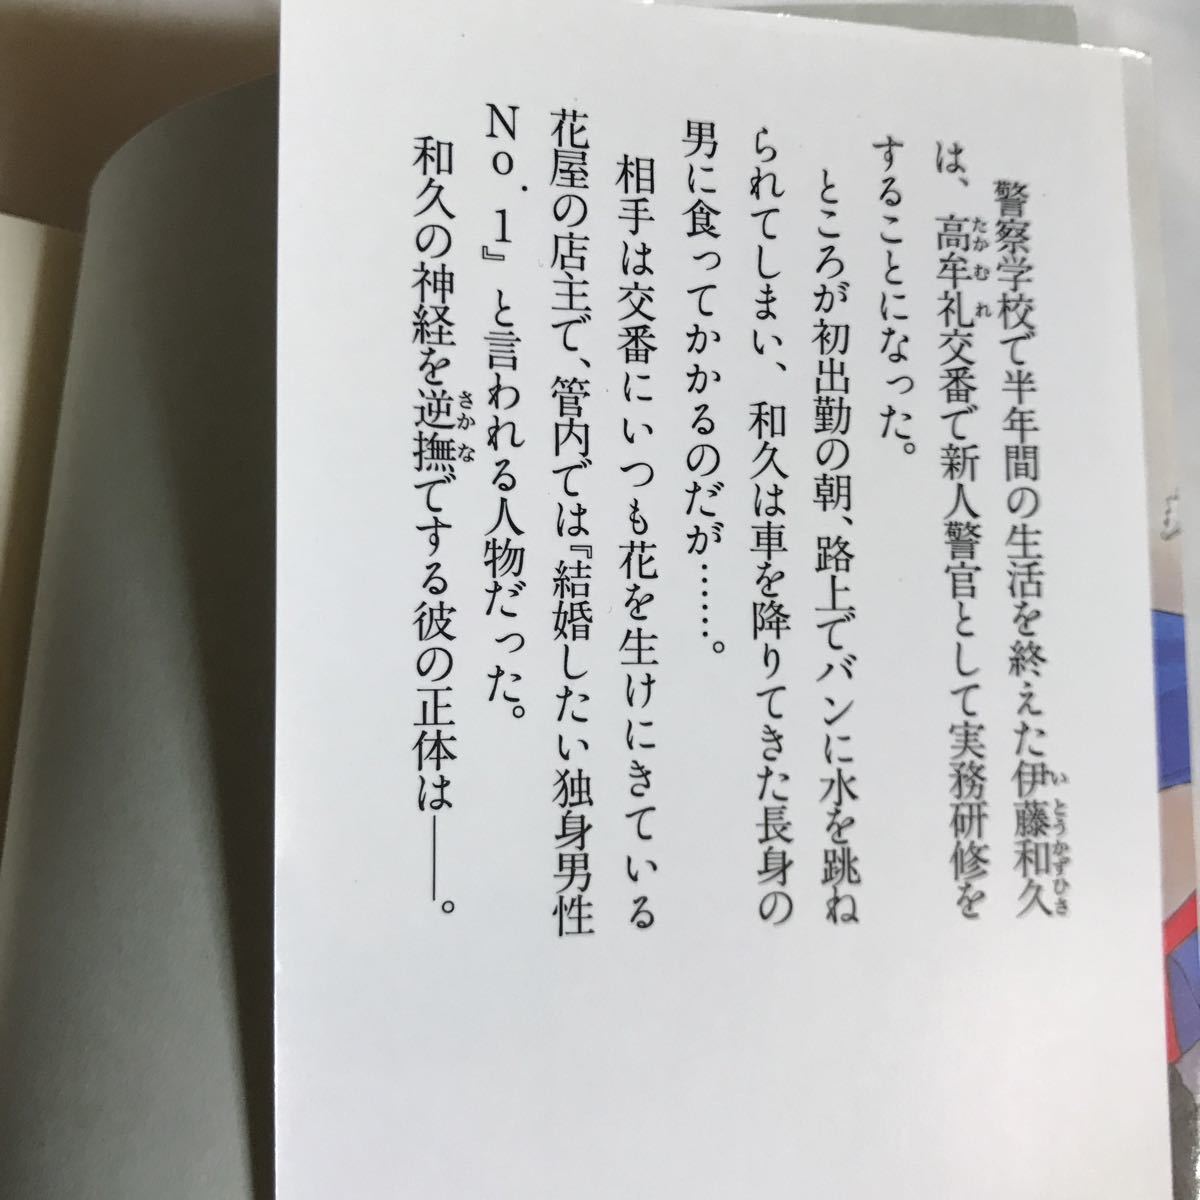 警察学校で半年間の生活を終えた伊藤和久
いとうかずひさ
は、高牟礼交番で新人警官として実務研修を
たかむれ
することになった。
ところが初出勤の朝、路上でバンに水を跳ね
られてしまい、和久は車を降りてきた長身の
男に食ってかかるのだが……。
相手は交番にいつも花を生けにきている
花屋の店主で、管内では『結婚したい独身男性
No.1』と言われる人物だった。
和久の神経を逆撫でする彼の正体は――。
さかな